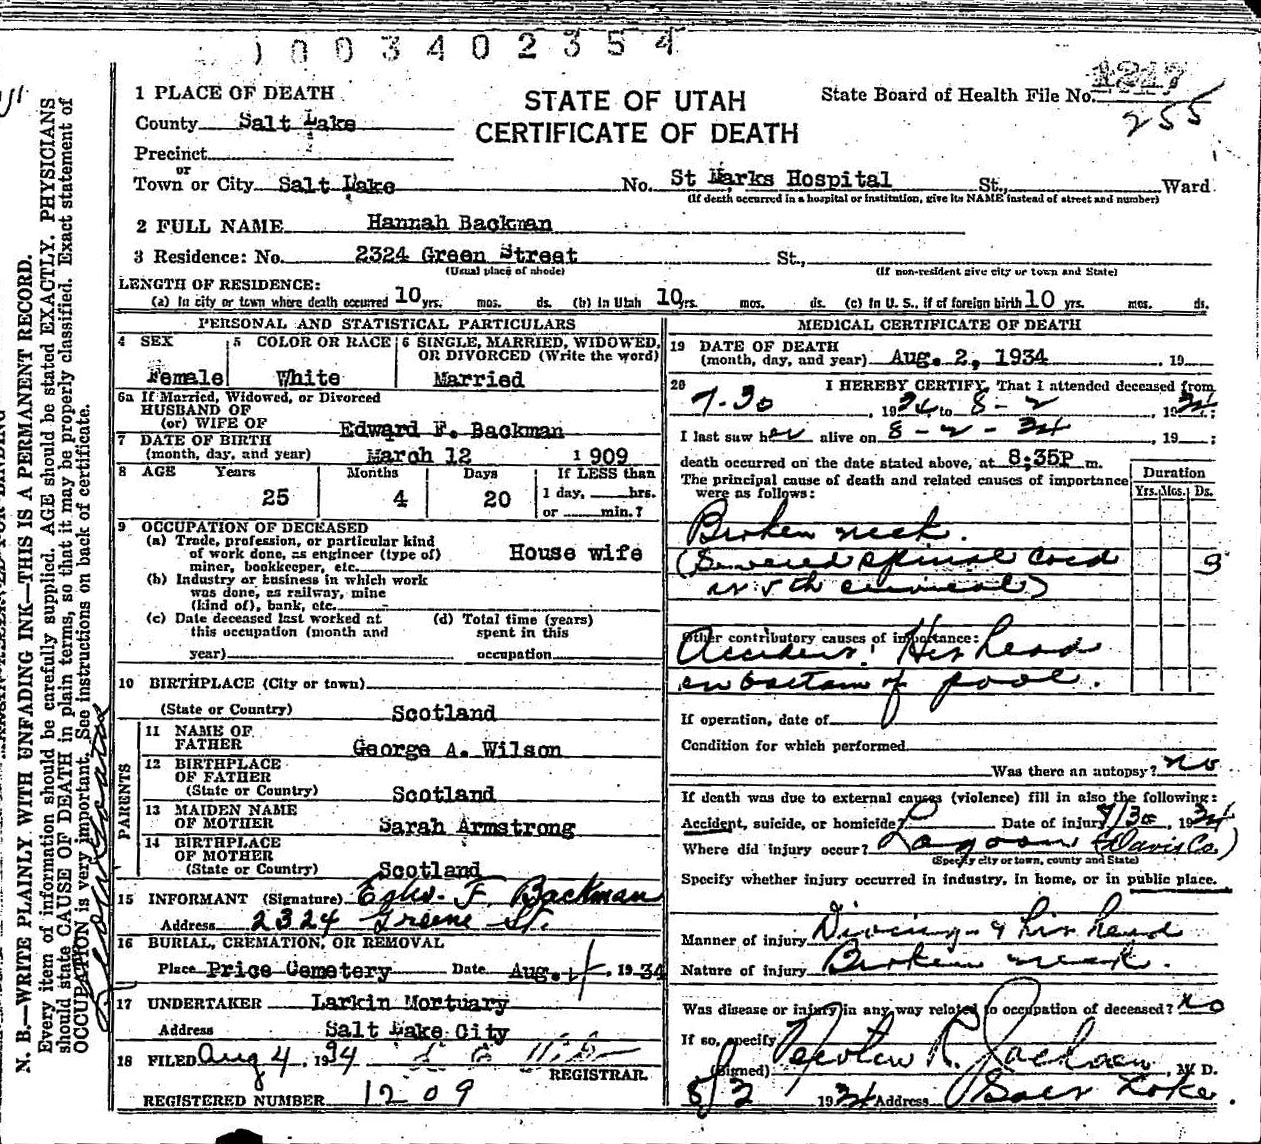 1003402354
1 PLACE OF DEATH
STATE OF UTAH
CERTIFICATE OF DEATH
State Board of Health File No. 1217
255
County Salt Lake
Precinct
or
Town or City Salt Lake No. St Marks Hospital St., Ward
(If death occurred in a hospital or institution, give its NAME instead of street and number)
2 FULL NAME Hannah Backman
3 Residence: No. 2324 Green Street St.,
(Usual place of abode) (If non-resident give city or town and State)
LENGTH OF RESIDENCE:
(a) In city or town where death occurred 10 yrs. mos. ds. (b) In Utah 10 yrs. mos. ds. (c) In U. S., if of foreign birth 10 yrs. mos. ds.
PERSONAL AND STATISTICAL PARTICULARS
4 SEX Female
5 COLOR OR RACE White
6 SINGLE, MARRIED, WIDOWED, OR DIVORCED (Write the word) Married
6a If Married, Widowed, or Divorced
HUSBAND OF
(or) WIFE OF Edward F. Backman
7 DATE OF BIRTH
(month, day, and year) March 12 1909
8 AGE Years Months Days If LESS than
25 4 20 1 day, hrs.
or min.?
9 OCCUPATION OF DECEASED
(a) Trade, profession, or particular kind
of work done, as engineer (type of) House wife
miner, bookkeeper, etc.
(b) Industry or business in which work
was done, as railway, mine
(kind of), bank, etc.
(c) Date deceased last worked at (d) Total time (years)
this occupation (month and spent in this
year) occupation
10 BIRTHPLACE (City or town)
(State or Country) Scotland
PARENTS
11 NAME OF
FATHER George A. Wilson
12 BIRTHPLACE
OF FATHER
(State or Country) Scotland
13 MAIDEN NAME
OF MOTHER Sarah Armstrong
14 BIRTHPLACE
OF MOTHER
(State or Country) Scotland
15 INFORMANT (Signature) Edw. F. Backman
Address 2324 Greene St.
16 BURIAL, CREMATION, OR REMOVAL
Place Price Cemetery Date Aug. 4, 1934
17 UNDERTAKER Larkin Mortuary
Address Salt Lake City
18 FILED Aug 4, 1934
REGISTRAR.
REGISTERED NUMBER 1209
MEDICAL CERTIFICATE OF DEATH
19 DATE OF DEATH
(month, day, and year) Aug. 2, 1934 , 19
20 I HEREBY CERTIFY, That I attended deceased from
7-30, 1934 to 8-2, 1934;
I last saw her alive on 8-2-34, 19 ;
death occurred on the date stated above, at 8;35P m.
The principal cause of death and related causes of importance
were as follows:
Duration
Yrs. Mos. Ds.
Broken neck.
(Severed spinal cord 3
at 5th cervical)
Other contributory causes of importance:
Accident: Hit head
on bottom of pool.
If operation, date of
Condition for which performed
Was there an autopsy? no
If death was due to external causes (violence) fill in also the following:
Accident, suicide, or homicide? Date of injury 7/30, 1934
Where did injury occur? Lagoon (Davis Co.)
(Specify city or town, county and State)
Specify whether injury occurred in industry, in home, or in public place.
Manner of injury Diving & hit head
Nature of injury Broken neck.
Was disease or injury in any way related to occupation of deceased? no
If so, specify
(Signed) M. D.
8/3 1934 Address Salt Lake
N. B.—WRITE PLAINLY WITH UNFADING INK—THIS IS A PERMANENT RECORD.
Every item of information should be carefully supplied. AGE should be stated EXACTLY. PHYSICIANS
should state CAUSE OF DEATH in plain terms, so that it may be properly classified. Exact statement of
OCCUPATION is very important. See instructions on back of certificate.